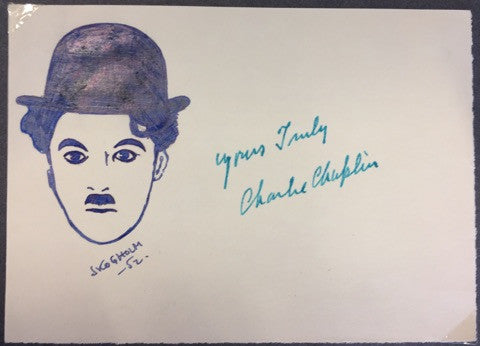 Yours Truly
Charlie Chaplin
SKOGHOLM
-52.